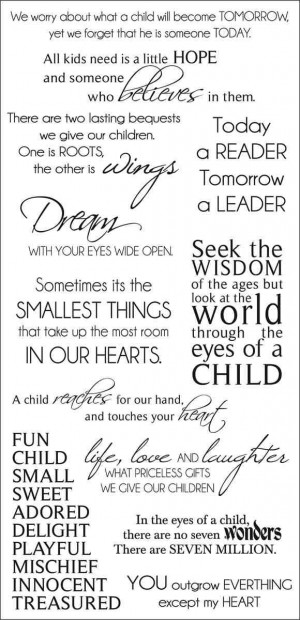 We worry about what a child will become TOMORROW,
yet we forget that he is someone TODAY.
All kids need is a little HOPE
and someone
who believes in them.
There are two lasting bequests
we give our children.
One is ROOTS,
the other is wings
Today
a READER
Tomorrow
a LEADER
Dream
WITH YOUR EYES WIDE OPEN.
Seek the
WISDOM
of the ages but
look at the
world
through the
eyes of a
CHILD
Sometimes its the
SMALLEST THINGS
that take up the most room
IN OUR HEARTS.
A child reaches for our hand,
and touches your heart
FUN
CHILD
SMALL
SWEET
ADORED
DELIGHT
PLAYFUL
MISCHIEF
INNOCENT
TREASURED
life, love AND laughter
WHAT PRICELESS GIFTS
WE GIVE OUR CHILDREN
In the eyes of a child,
there are no seven wonders
There are SEVEN MILLION.
YOU outgrow EVERTHING
except my HEART